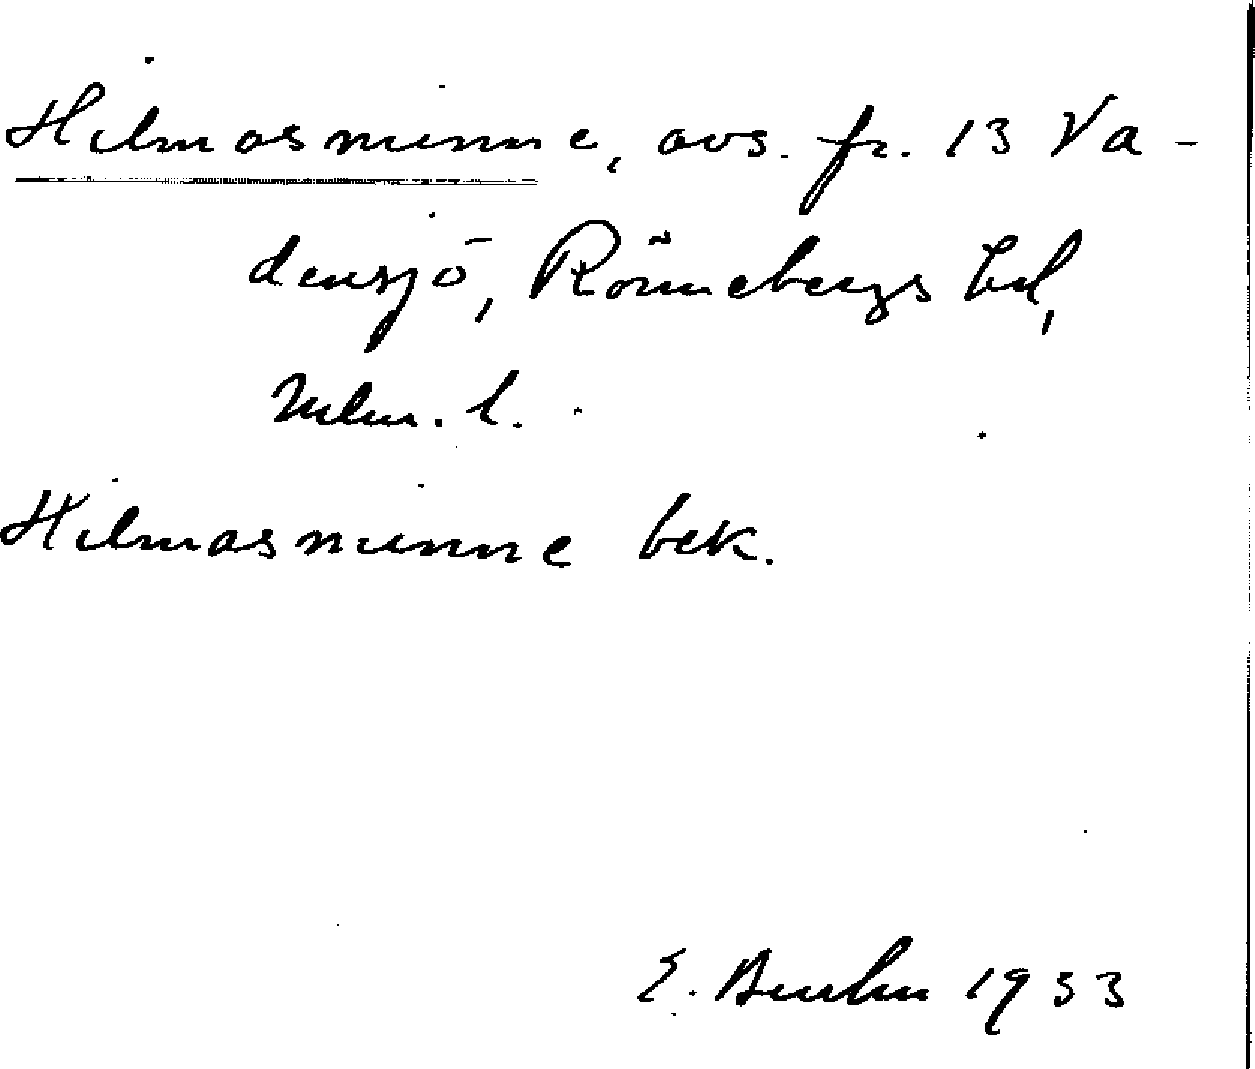 Hilmasminne, avs. fr. 13 Va-
densjö, Rönnebergs hd,
Mlm. l.
Hilmasminne bek.
E. 1933